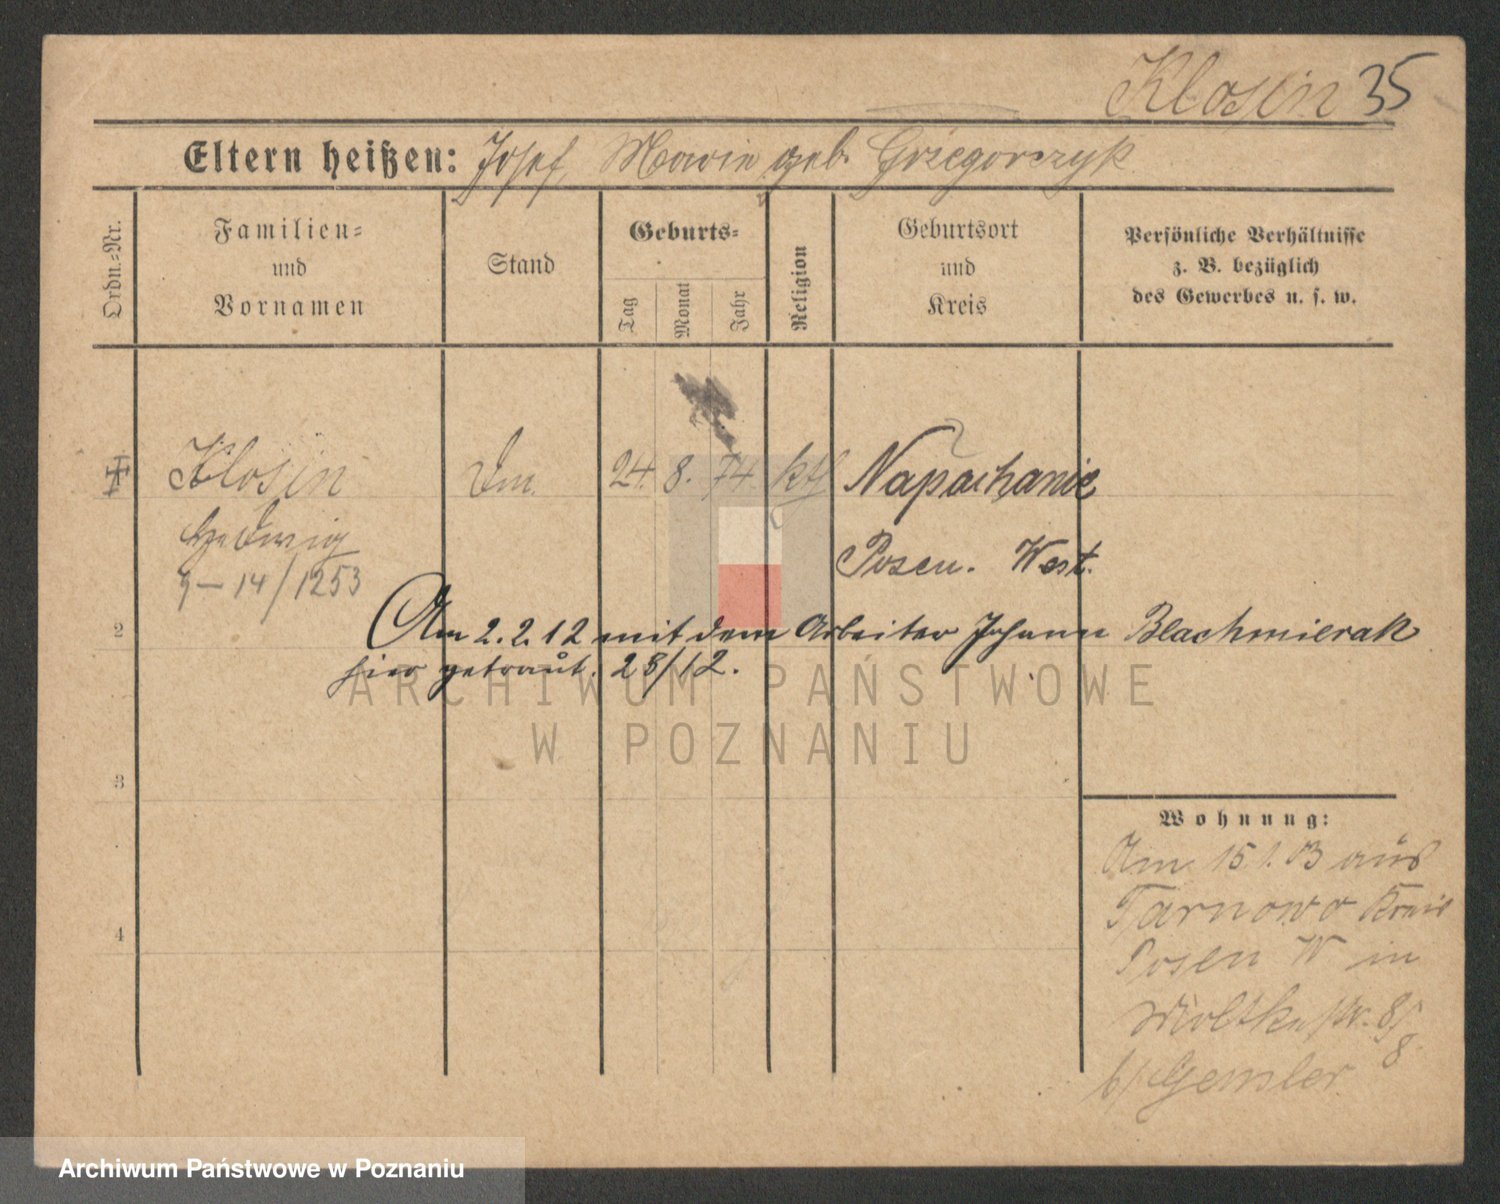 Klosin 35
Eltern heißen: Josef, Marie geb. Grzegorczyk
Ordn.=Nr.
Familien=
und
Vornamen
Stand
Geburts=
Tag
Monat
Jahr
Religion
Geburtsort
und
Kreis
Persönliche Verhältnisse
z. B. bezüglich
des Gewerbes u. s. w.
Klosin 24. 8. 74. kth Napachanie
Hedwig Posen. West.
9-14/1253
2 Am 2.2.12 mit dem Arbeiter Johann Blachmierak
hier getraut. 28/12.
3
4
Wohnung:
Am 15.1. aus
Tarnowo Kreis
Posen W in
Moltkestr. 8/8
b/ Gensler
ARCHIWUM PAŃSTWOWE
W POZNANIU
Archiwum Państwowe w Poznaniu